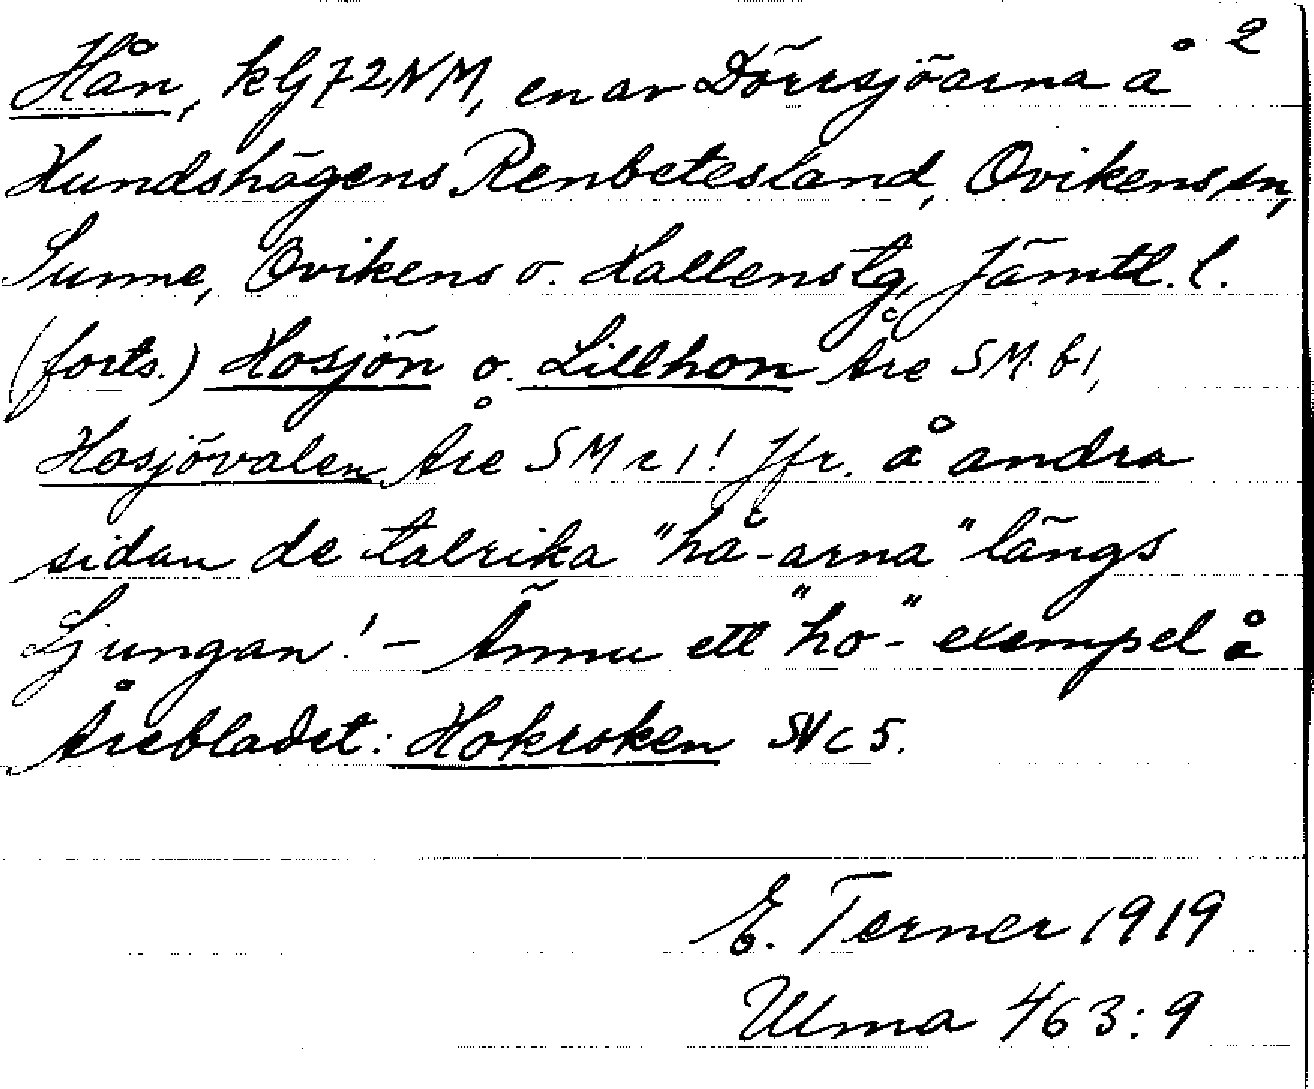 2
Hån, kbf72NM, en av Dörrsjöarna å
Hundshögens Renbetesland, Ovikens sn,
Sunne, Ovikens o. Hallens tg, Jämtl. l.
(forts.) Hosjön o. Lillhon Åre SM. b1,
Hosjövalen Åre SM c1! Jfr. å andra
sidan de talrika "hå-arna" längs
Ljungan! - Ännu ett "ho-" exempel å
Årebladet: Hokroken SV c 5.
E. Terner 1919
Ulma 463:9